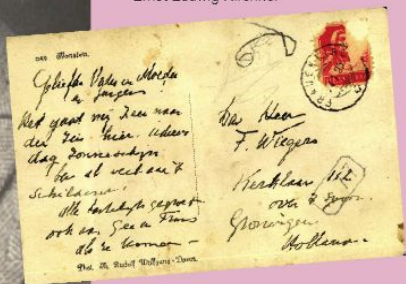 Ernst Ludwig Kirchner
Geliefde Vader en Moeder
en Jongens
Het gaat mij zeer naar
den zin hier. iedere
dag zonneschijn
ben al veel aan't
schilderen.
Alle hartelijk gegroet
ook aan Gé en Frans
als ze komen
Phot. Th. Rudolf Wolfgang - Davos.
FRAUENKIRCH
Den Heer
F. Wiegers
Kerklaan
Groningen
Holland